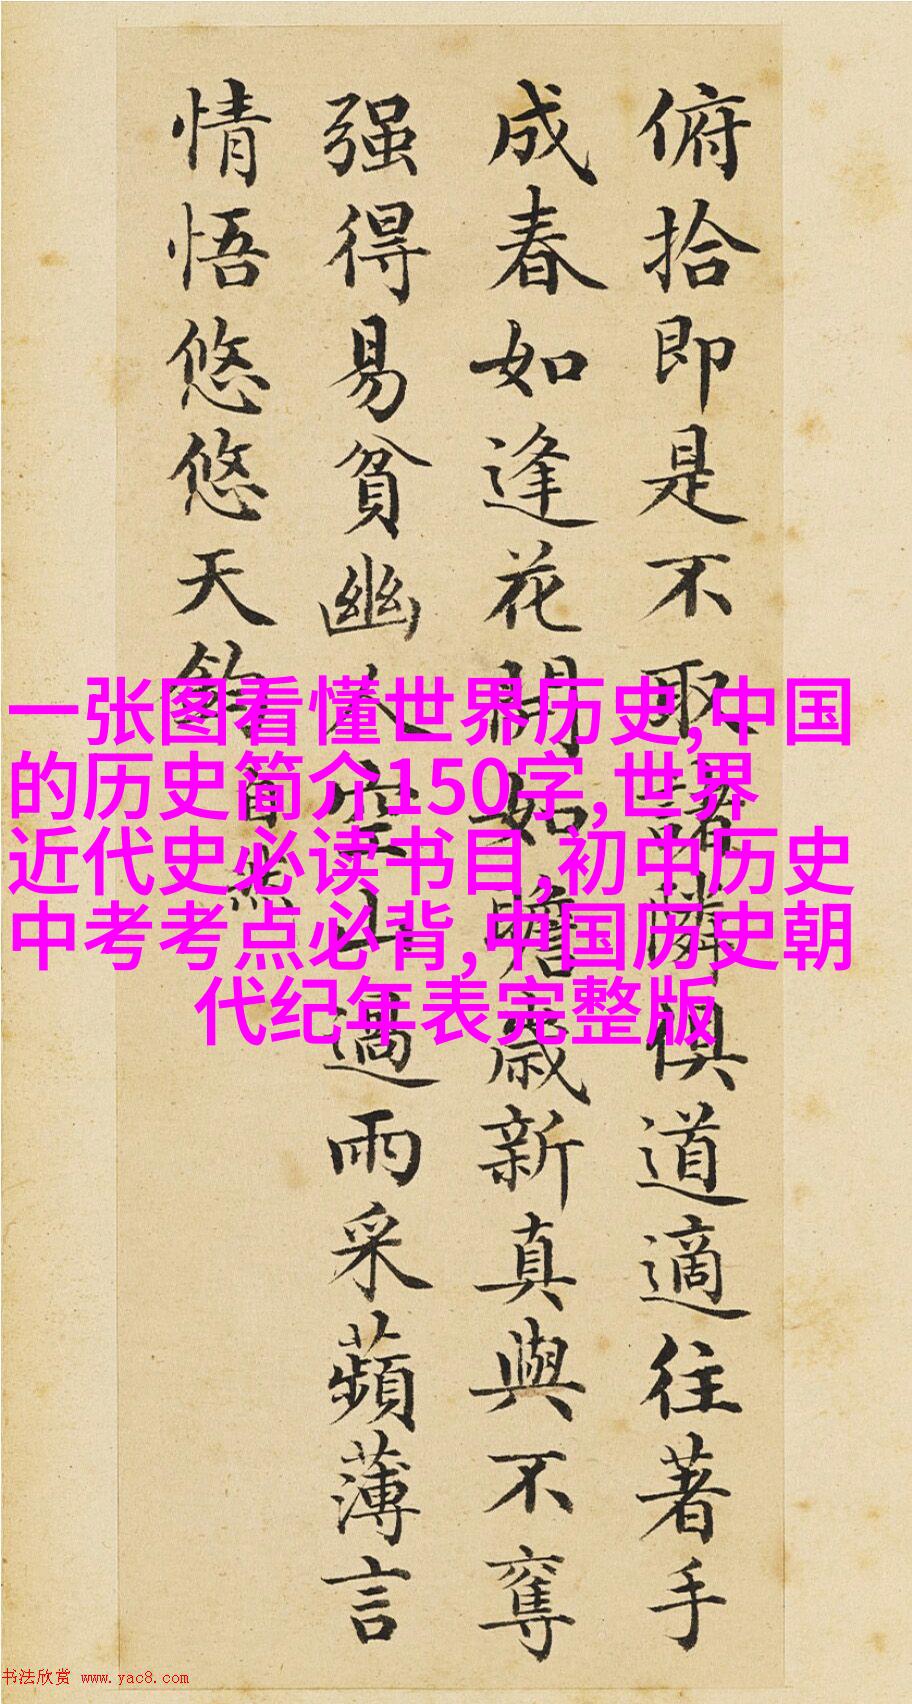 俯拾即是不取諸隣俱道適往著手
成春如逢花開如瞻歲新真與不奪
强得易貧幽人空山過雨采蘋薄言
情悟悠悠天鈞
自然
一张图看懂世界历史,中国
的历史简介150字,世界
近代史必读书目,初中历史
中考考点必背,中国历史朝
代纪年表完整版
书法欣赏 www.yac8.com